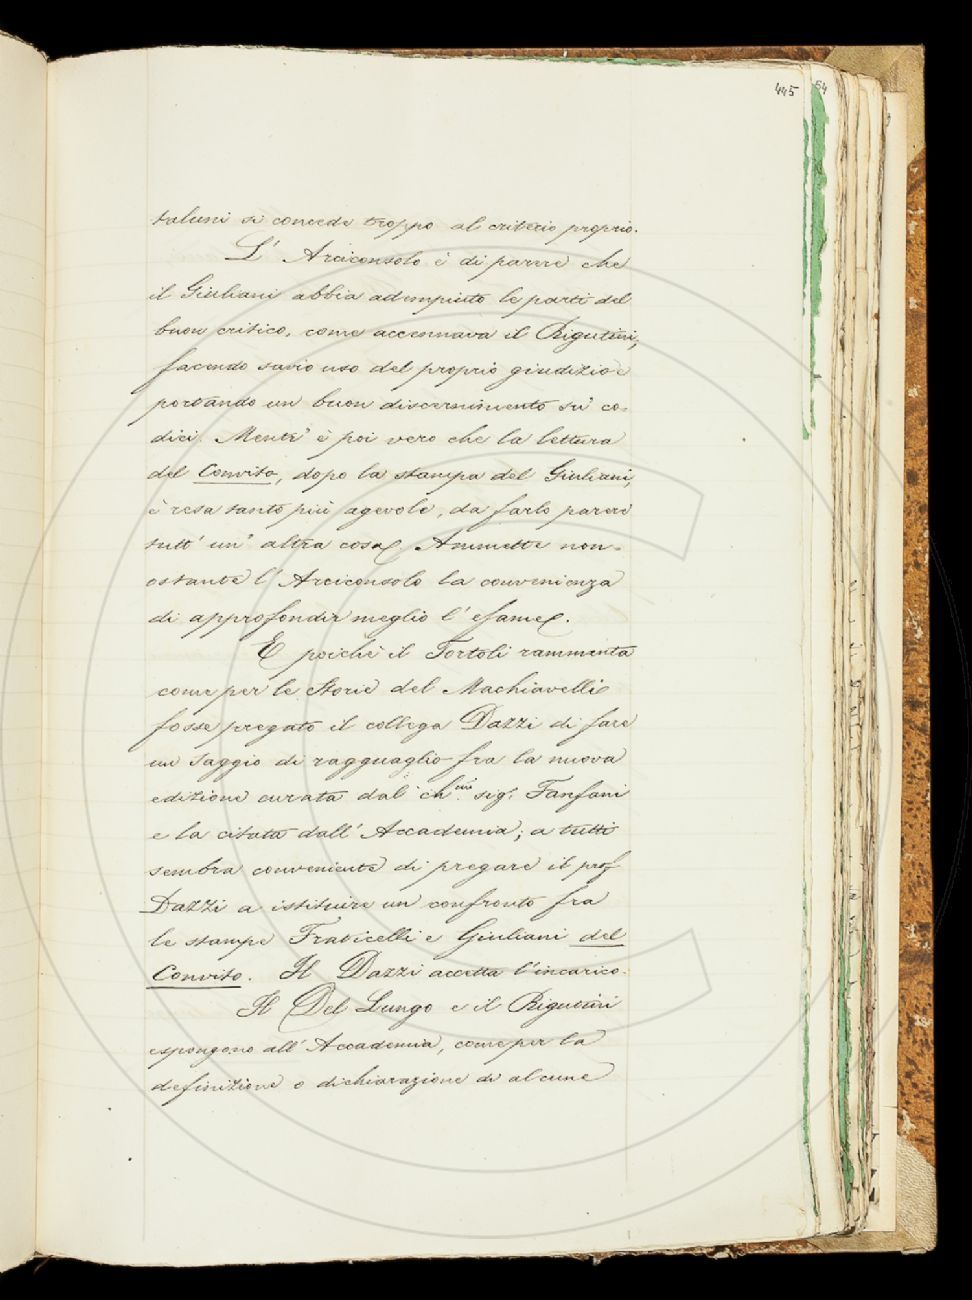 445
54
taluni si concede troppo al criterio proprio.
L' Arciconsolo è di parere che
il Giuliani abbia adempiuto le parti del
buon critico, come accennava il Rigutini,
facendo savio uso del proprio giudizio e
portando un buon discernimento su' co-
dici. Ment' è poi vero che la lettura
del Convito, dopo la stampa del Giuliani,
è resa tanto più agevole, da farlo parere
tutt' un' altra cosa. Ammette non-
ostante l' Arciconsolo la convenienza
di approfondir meglio l' esame.
E poichè il Tortoli rammenta
come per le Storie del Machiavelli
fosse pregato il collega Dazzi di fare
un saggio di ragguaglio fra la nuova
edizione curata dal ch.mo sig. Fanfani
e la citata dall' Accademia; a tutti
sembra conveniente di pregare il prof.
Dazzi a istituire un confronto fra
le stampe Fraticelli e Giuliani del
Convito. Il Dazzi accetta l' incarico.
Il Del Lungo e il Rigutini
espongono all' Accademia, come per la
definizione o dichiarazione di alcune